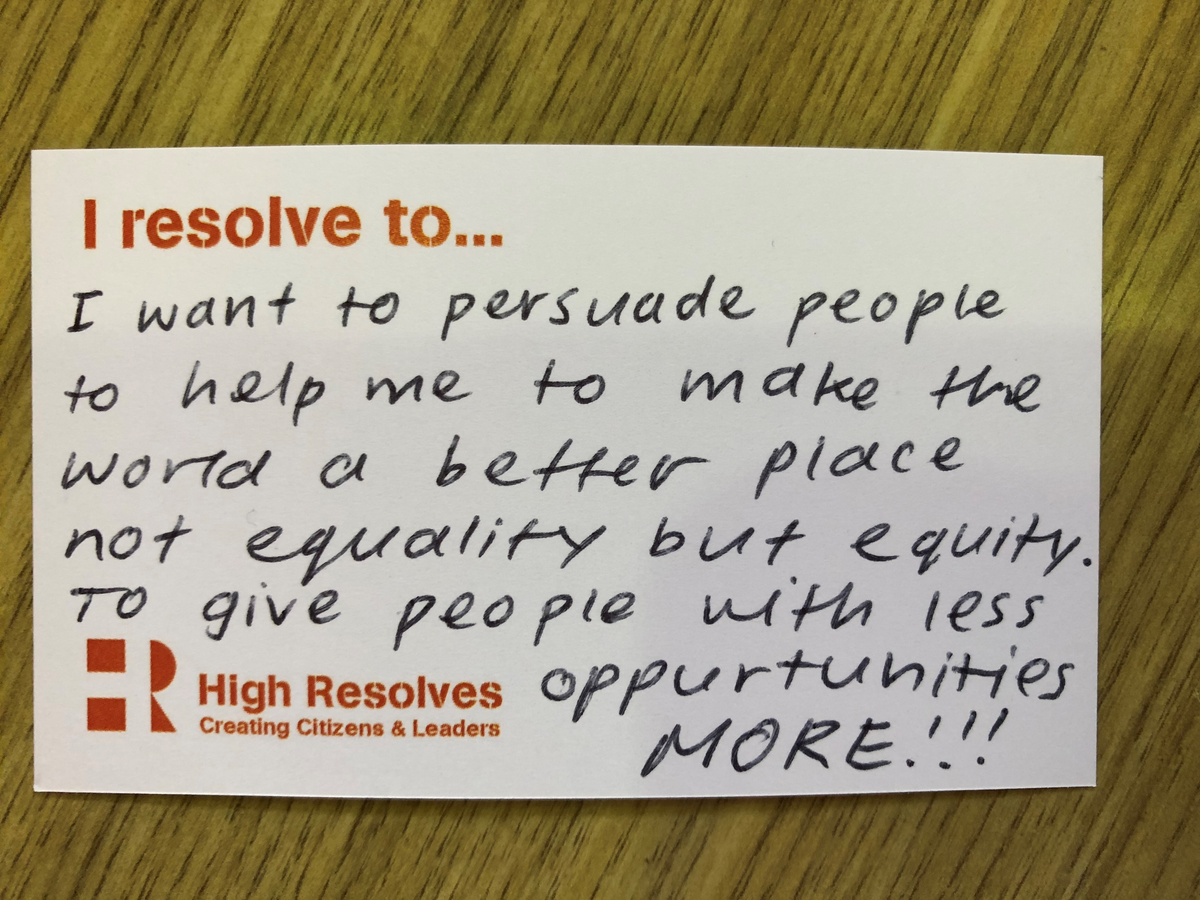 I resolve to...
I want to persuade people
to help me to make the
world a better place
not equality but equity.
To give people with less
oppurtunities
MORE!!!
HR High Resolves
Creating Citizens & Leaders